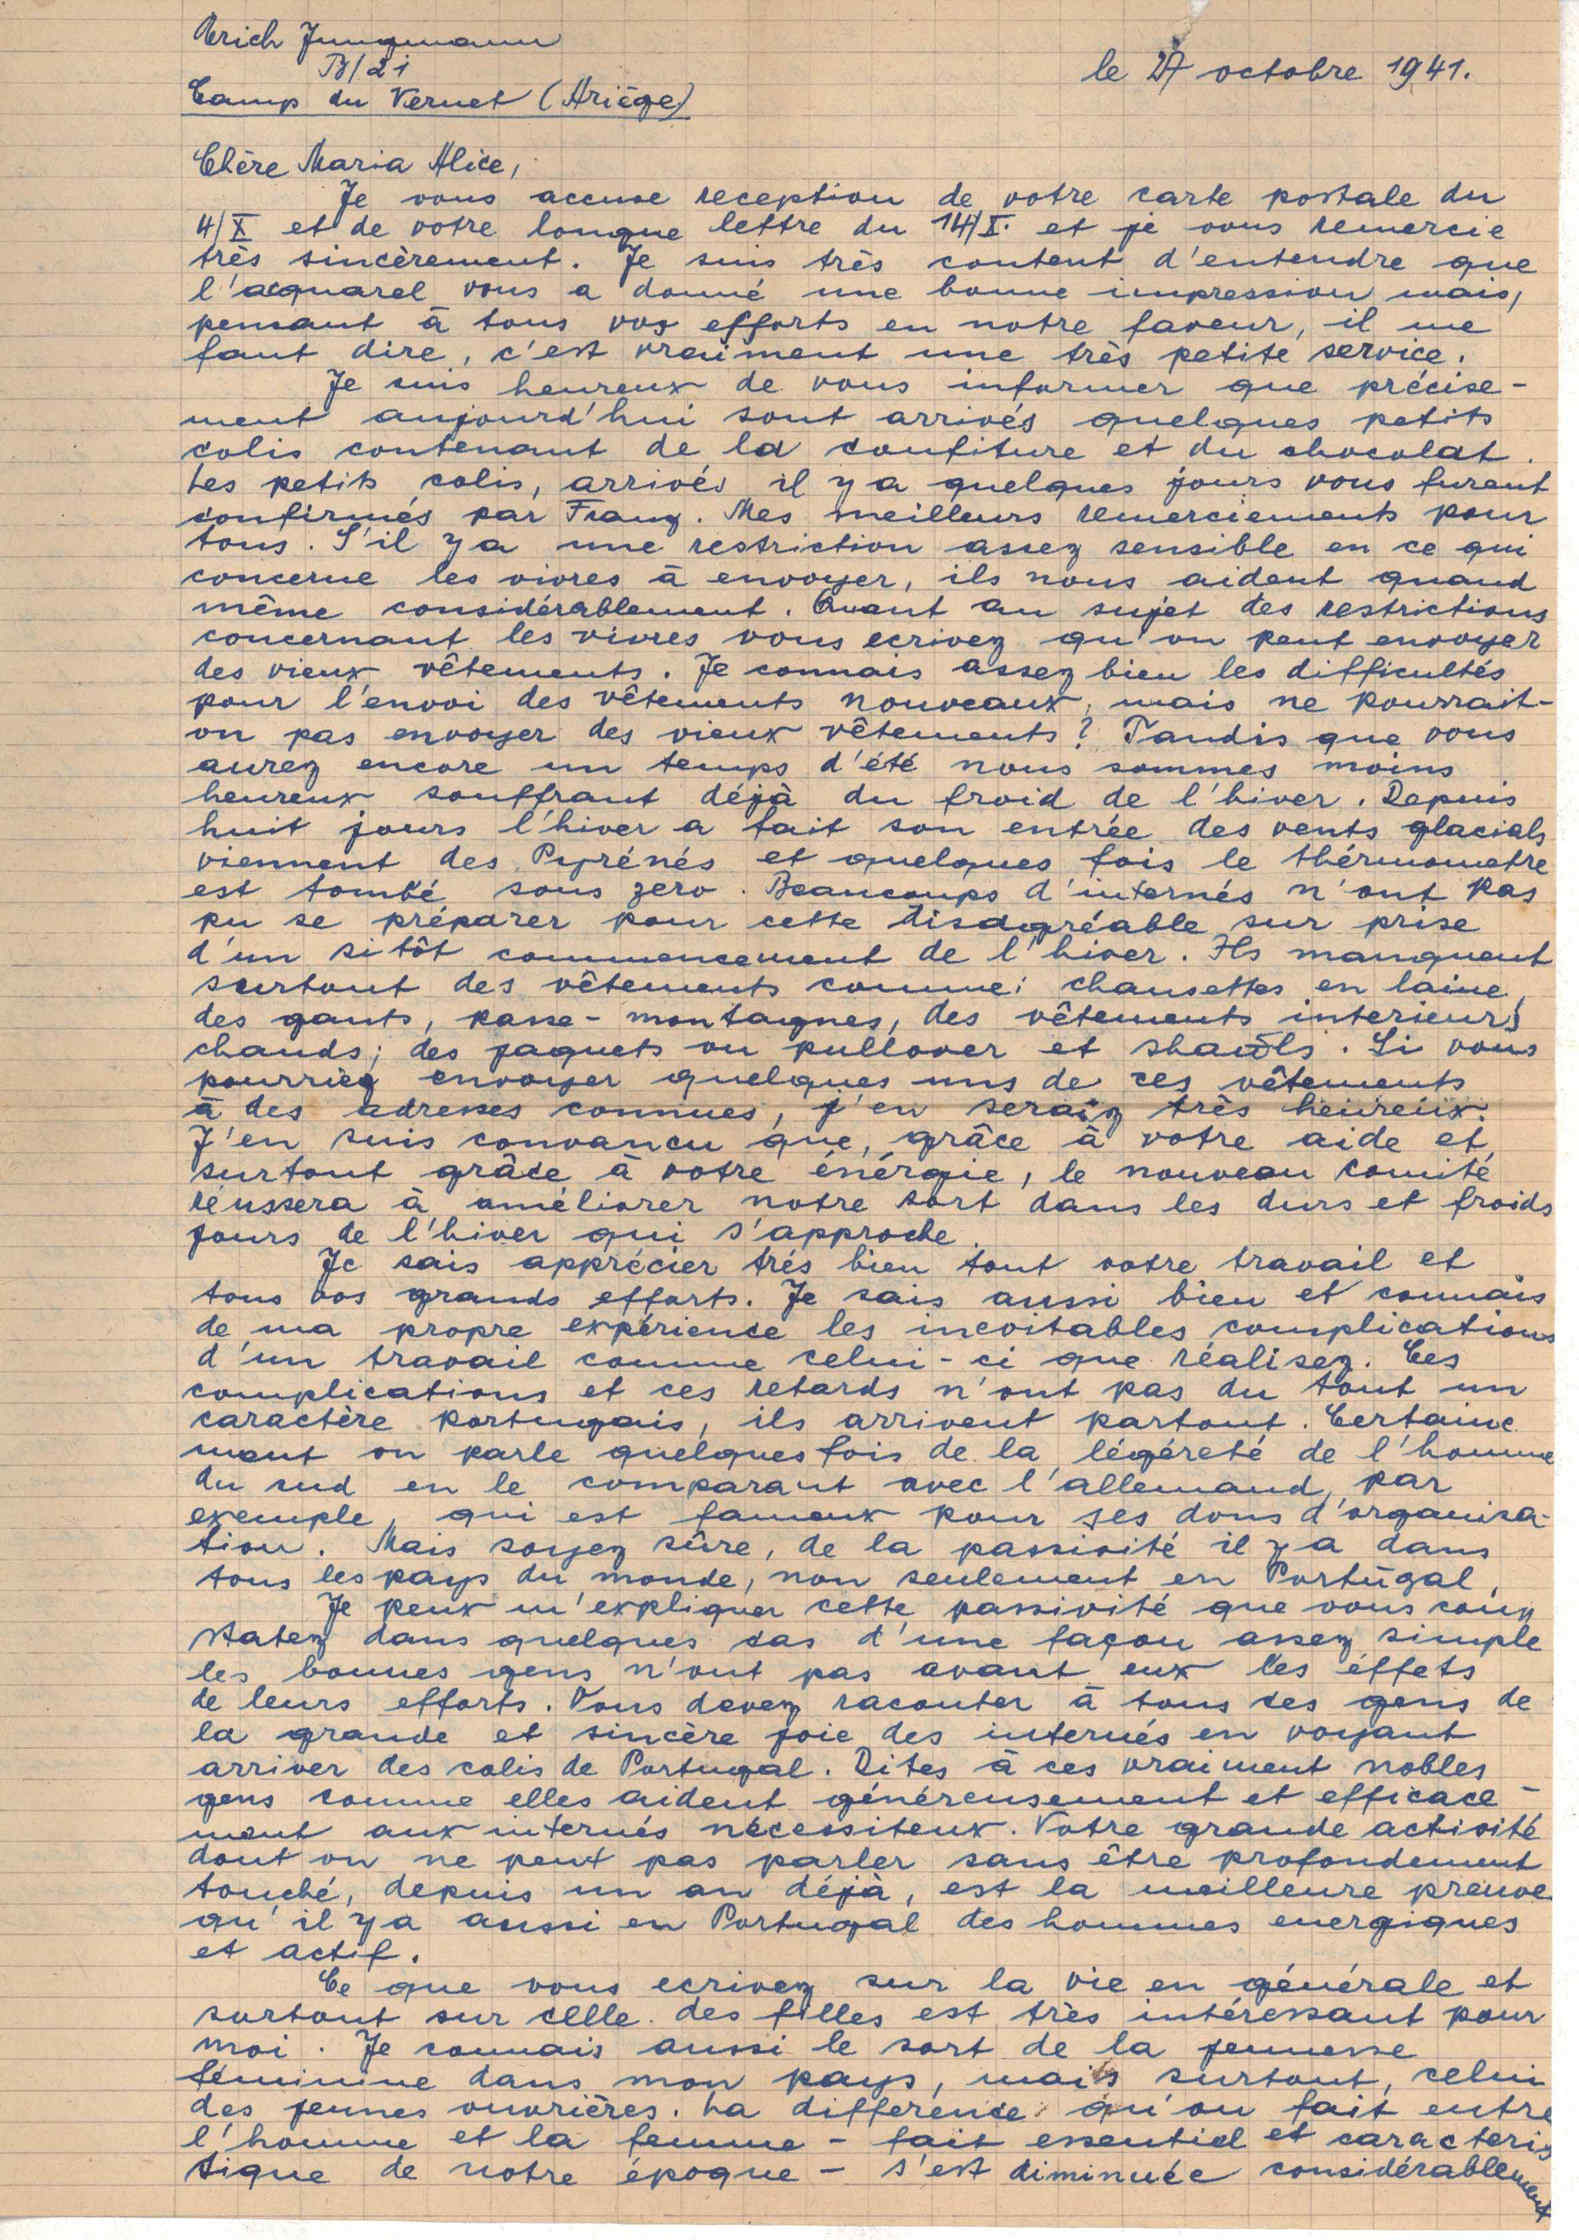 Erich Jungmann
B/21
Camp du Vernet (Ariège)
le 27 octobre 1941.
Chère Maria Alice,
Je vous accuse reception de votre carte postale du
4/X et de votre longue lettre du 14/X. et je vous remercie
très sincèrement. Je suis très content d'entendre que
l'acquarel vous a donné une bonne impression mais,
pensant à tous vos efforts en notre faveur, il me
faut dire, c'est vraiment une très petite service.
Je suis heureux de vous informer que précise-
ment aujourd'hui sont arrivés quelques petits
colis contenant de la confiture et du chocolat.
Les petits colis, arrivés il y a quelques jours vous furent
confirmés par Franz. Mes meilleurs remerciements pour
tous. S'il y a une restriction assez sensible en ce qui
concerne les vivres à envoyer, ils nous aident quand
même considérablement. Quant au sujet des restrictions
concernant les vivres vous ecrivez qu'on peut envoyer
des vieux vêtements. Je connais assez bien les difficultés
pour l'envoi des vêtements nouveaux, mais ne pourrait-
on pas envoyer des vieux vêtements? Tandis que vous
aurez encore un temps d'été nous sommes moins
heureux souffrant déjà du froid de l'hiver. Depuis
huit jours l'hiver a fait son entrée des vents glacials
viennent des Pyrénés et quelques fois le thérmometre
est tombé sous zero. Beaucoups d'internés n'ont pas
pu se préparer pour cette disagréable sur prise
d'un si tôt commencement de l'hiver. Ils manquent
surtout des vêtements comme: chausettes en laine,
des gants, passe-montagnes, des vêtements interieurs
chauds; des jaquets ou pullover et shawls. Si vous
pourriez envoyer quelques uns de ces vêtements
à des adresses connues, j'en seraiz très heureux.
J'en suis convancu que, grâce à votre aide et
surtout grâce à votre énérgie, le nouveau comité
réussera à améliorer notre sort dans les durs et froids
jours de l'hiver qui s'approche.
Je sais apprécier trés bien tout votre travail et
tous vos grands efforts. Je sais aussi bien et connais
de ma propre expérience les inevitables complications
d'un travail comme celui-ci que réalisez. Ces
complications et ces retards n'ont pas du tout un
caractère portugais, ils arrivent partout. Certaine
ment on parle quelques fois de la légéreté de l'homme
du sud en le comparant avec l'allemand, par
exemple, qui est fameux pour ses dons d'organisa-
tion. Mais soyez sûre, de la passivité il y a dans
tous les pays du monde, non seulement en Portugal.
Je peux m'expliquer cette passivité que vous con
statez dans quelques cas d'une façon assez simple
les bonnes gens n'ont pas avant eux les éffets
de leurs efforts. Vous devez raconter à tous ces gens de
la grande et sincère joie des internés en voyant
arriver des colis de Portugal. Dites à ces vraiment nobles
gens comme elles aident généreusement et efficace-
ment aux internés nécessiteux. Votre grande activité
dont on ne peut pas parler sans être profondement
touché, depuis un an déjà, est la meilleure preuve
qu'il y a aussi en Portugal des hommes energiques
et actif.
Ce que vous ecrivez sur la vie en générale et
surtout sur celle des filles est très intéressant pour
moi. Je connais aussi le sort de la jeunesse
féminine dans mon pays, mais surtout, celui
des jeunes ouvrières. La difference qu'on fait entre
l'homme et la femme - fait essentiel et caracteris
tique de notre époque - s'est diminuée considérablement